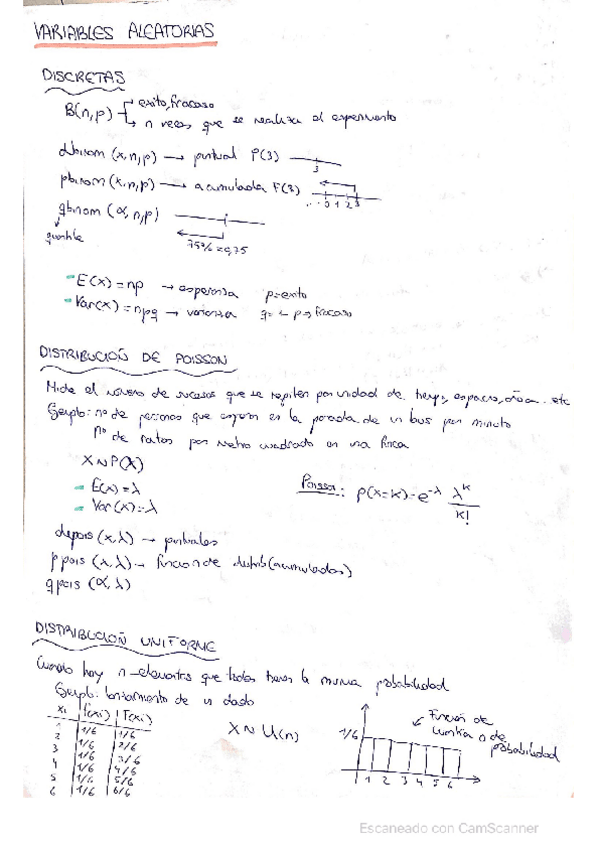 VARIABLES ALEATORIAS
DISCRETAS
B(n,p) → exito, fracaso
→ n veces que se realiza el experimento
dbinom (x,n,p) → puntual P(3)
3
pbinom (x,n,p) → acumulada F(3)
... 0 1 2 3
qbinom (α,n,p)
quantile
75% = 0,75
- E(x) = np → esperanza p=exito
- Var(x) = npq → varianza q=1-p → fracaso
DISTRIBUCIOÑ DE POISSON
Mide el número de sucesos que se repiten por unidad de tiempo, espacio, área.. etc
Ejemplo: nº de personas que esperan en la parada de un bus por minuto
Nº de ratos por metro cuadrado en una finca
X ~ P(λ)
- E(x) = λ
- Var(x) = λ
Poisson: P(X=K) = e^-λ λ^K / K!
dpois (x,λ) → puntuales
ppois (x,λ) → funcion de distrib (acumulados)
qpois (α,λ)
DISTRIBUCIOÑ UNIFORME
Cuando hay n-elementos que todos tienen la misma probabilidad
Ejemplo: lanzamiento de un dado
xi | f(xi) | F(xi)
1 | 1/6 | 1/6
2 | 1/6 | 2/6
3 | 1/6 | 3/6
4 | 1/6 | 4/6
5 | 1/6 | 5/6
6 | 1/6 | 6/6
X ~ U(n)
1/6
1 2 3 4 5 6
Función de
de
probabilidad
Escaneado con CamScanner